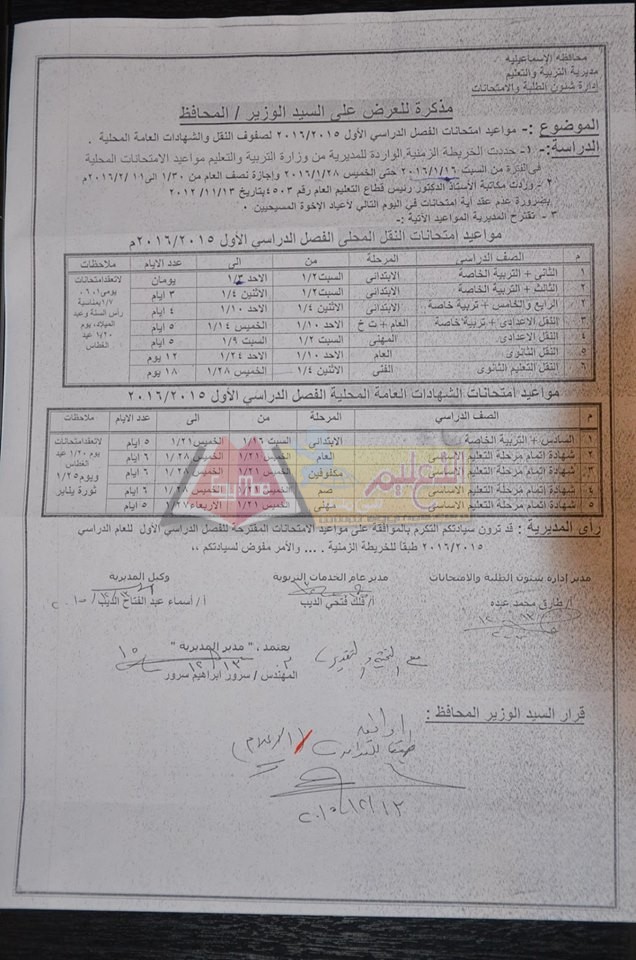 محافظة الإسماعيلية
مديرية التربية والتعليم
إدارة شئون الطلبة والامتحانات
مذكرة للعرض على السيد الوزير / المحافظ
الموضوع :- مواعيد امتحانات الفصل الدراسي الأول ٢٠١٦/٢٠١٥ لصفوف النقل والشهادات العامة المحلية .
الدراسة:- ١- حددت الخريطة الزمنية الواردة للمديرية من وزارة التربية والتعليم مواعيد الامتحانات المحلية
في الفترة من السبت ٢٠١٦/١/١٦ حتى الخميس ٢٠١٦/١/٢٨ وإجازة نصف العام من ١/٣٠ الى ٢٠١٦/٢/١١م
٢ - وردت مكاتبة الأستاذ الدكتور رئيس قطاع التعليم العام رقم ٤٥٠٣ بتاريخ ٢٠١٢/١١/١٣
بضرورة عدم عقد أية إمتحانات في اليوم التالي لأعياد الإخوة المسيحيين .
٣ - تقترح المديرية المواعيد الأتية :-
مواعيد امتحانات النقل المحلى الفصل الدراسي الأول ٢٠١٦/٢٠١٥م
م الصف الدراسي المرحلة من الى عدد الايام ملاحظات
١ الثانى + التربية الخاصة الابتدائي السبت ١/٢ الاحد ١/٣ يومان
٢ الثالث + التربية الخاصة الابتدائي السبت ١/٢ الاثنين ١/٤ ٣ ايام
الرابع والخامس + تربية خاصة الابتدائي الاثنين ١/٤ الاحد ١/١٠ ٤ ايام
٣ النقل الاعدادى + تربية خاصة العام + ت خ الاحد ١/١٠ الخميس ١/١٤ ٥ ايام
٤ النقل الاعدادى المهنى السبت ١/٢ السبت ١/٩ ٥ ايام
٥ النقل الثانوى العام الاحد ١/١٠ الاحد ١/٢٤ ١٢ يوم
٦ النقل التعليم الثانوى الفنى الاثنين ١/٤ الخميس ١/٢٨ ١٨ يوم
لاتعقد امتحانات
يومى ١، ٠٦
١/٧ بمناسبة
رأس السنة وعيد
الميلاد، يوم
١/٢٠ عيد
الغطاس
مواعيد امتحانات الشهادات العامة المحلية الفصل الدراسي الأول ٢٠١٦/٢٠١٥
م الصف الدراسي المرحلة من الى عدد الايام ملاحظات
١ السادس + التربية الخاصة الابتدائي السبت ١/١٦ الخميس ١/٢١ ٥ ايام
٢ شهادة إتمام مرحلة التعليم الاساسى العام الخميس ١/٢١ الخميس ١/٢٨ ٦ ايام
٣ شهادة إتمام مرحلة التعليم الاساسى مكفوفين الخميس ١/٢١ الخميس ١/٢٨ ٦ ايام
٤ شهادة إتمام مرحلة التعليم الاساسى صم ١/٢١ ١/٢٨ ٦ ايام
٥ شهادة إتمام مرحلة التعليم الاساسى مهنى الخميس ١/٢١ الاربعاء ١/٢٧ ٥ ايام
لاتعقد امتحانات
يوم ١/٢٠ عيد
الغطاس
ويوم ١/٢٥
ثورة يناير
التعليم
رأى المديرية : قد ترون سيادتكم التكرم بالموافقة على مواعيد الامتحانات المقترحة للفصل الدراسي الأول للعام الدراسي
٢٠١٦/٢٠١٥ طبقا للخريطة الزمنية . ... والأمر مفوض لسيادتكم ،،
مدير إدارة شئون الطلبة والامتحانات
أ/ طارق محمد عبده
مدير عام الخدمات التربوية
أ/ فلك فتحي الديب
وكيل المديرية
أ/ أسماء عبد الفتاح الديب
يعتمد ، " مدير المديرية "
المهندس / سرور ابراهيم سرور
قرار السيد الوزير المحافظ :